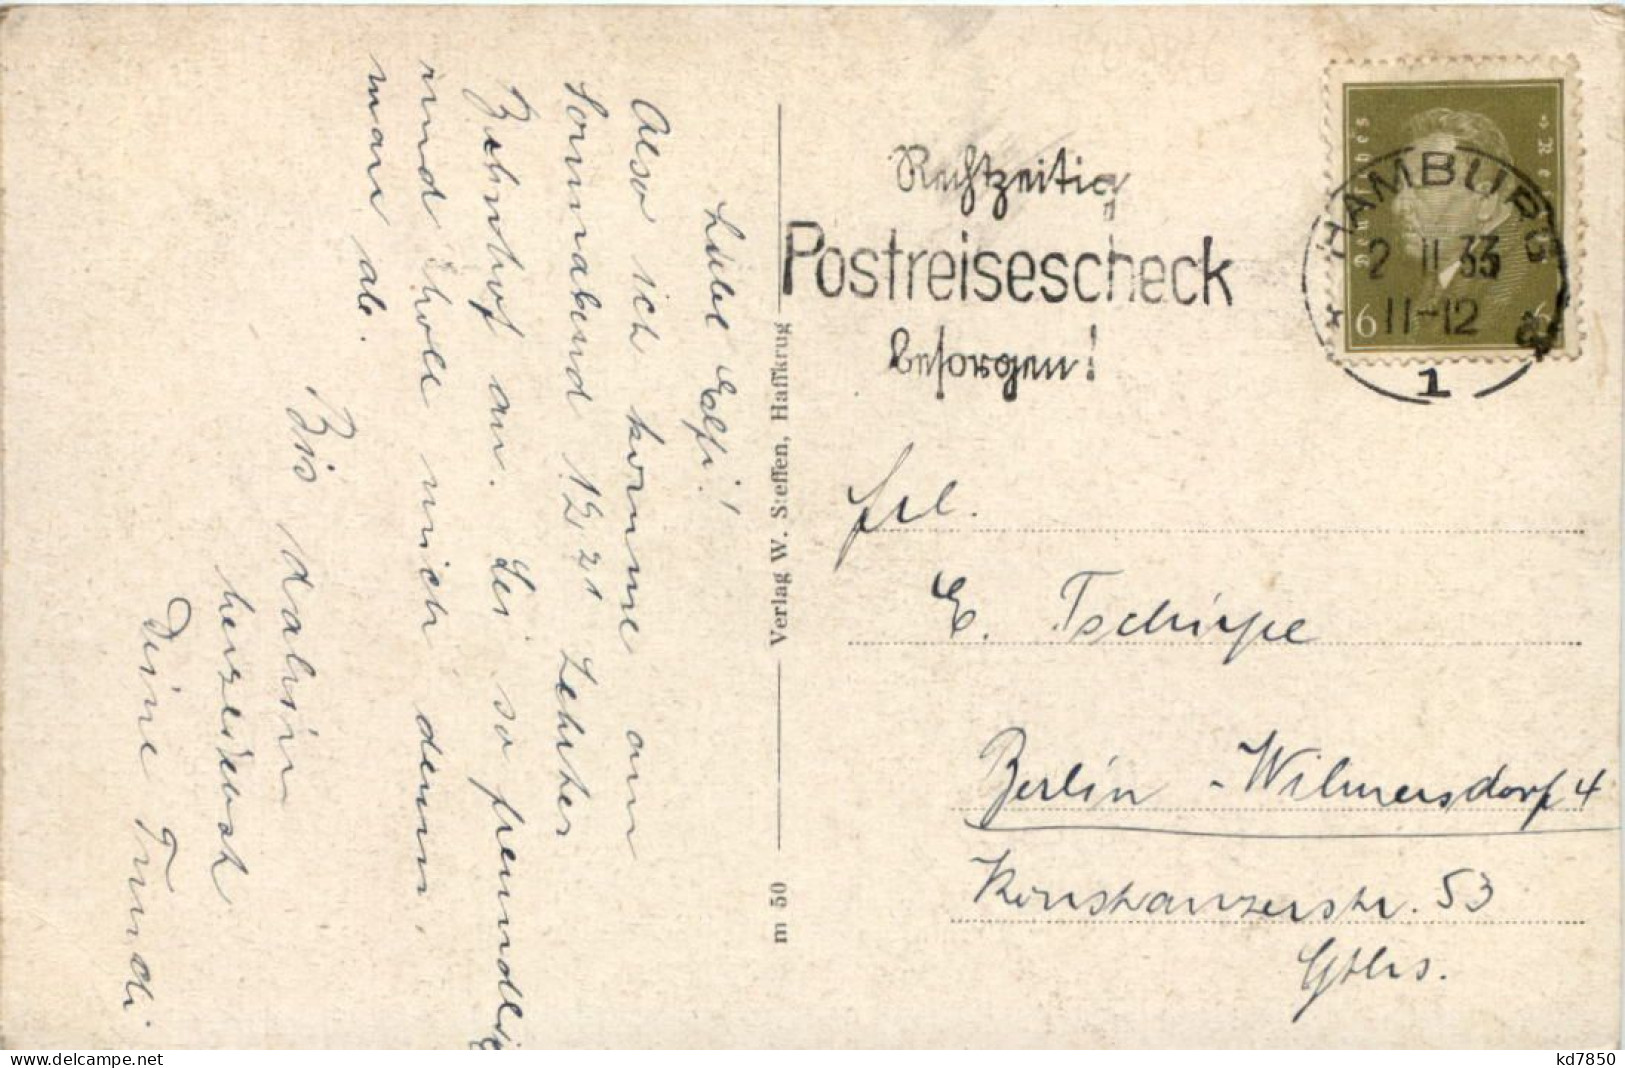 Liebe Elfi!
Also ich komme am
Sonnabend 12,21 Lehrter
Bahnhof an. Sei so freundlich
und hole mich denn,
man ab.
Bis dahin
herzlichst
Deine Trudi
Verlag W. Steffen, Haffkrug
m 50
Rechtzeitig
Postreisescheck
besorgen!
Deutsches Reich
6 6
HAMBURG
2 II 33
11-12
1
Frl.
E. Tschirpe
Berlin-Wilmersdorf 4
Konstanzerstr. 53
Gths.
delcampe.net
kd7850